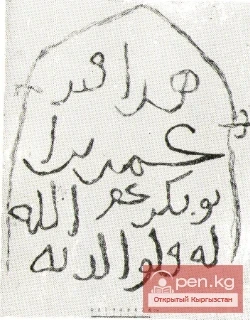 هدا قبر
عمر بن ا
بو بكر غفر الله
له ولوالديه
pen.kg
Открытый Кыргызстан